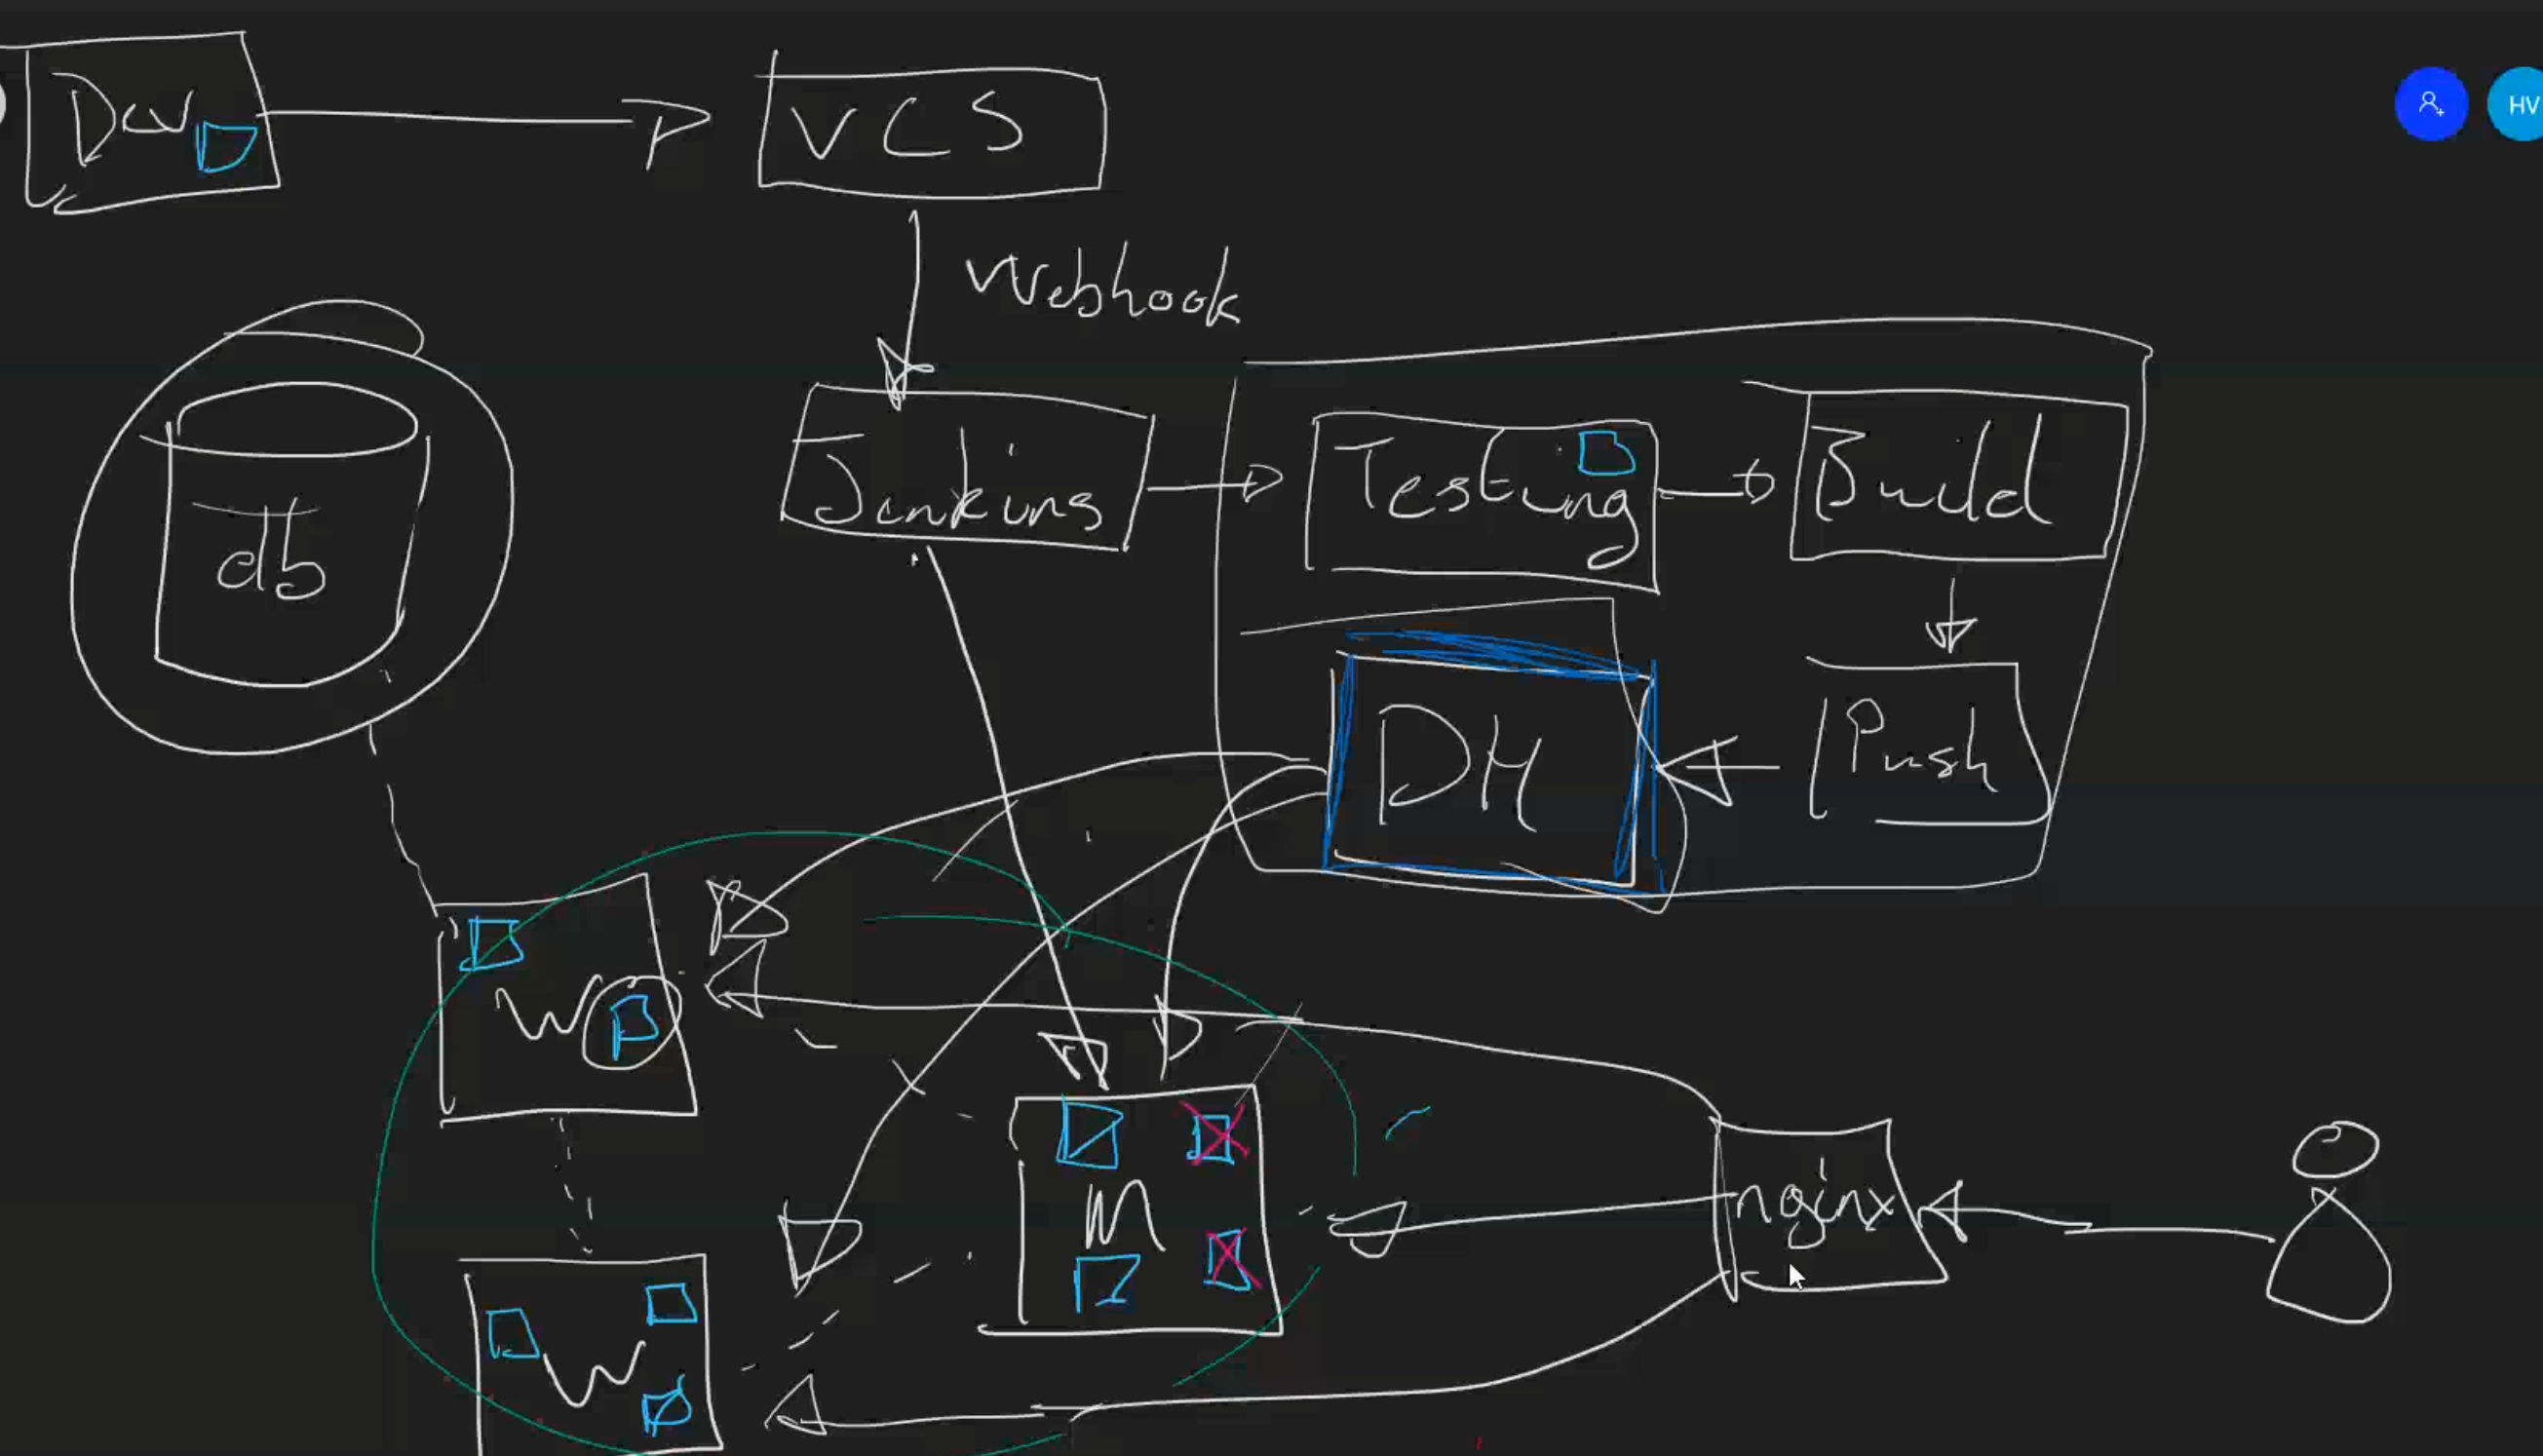 Dev
VCS
HV
Webhook
Jenkins
Testing
Build
db
DH
Push
W
M
nginx
W